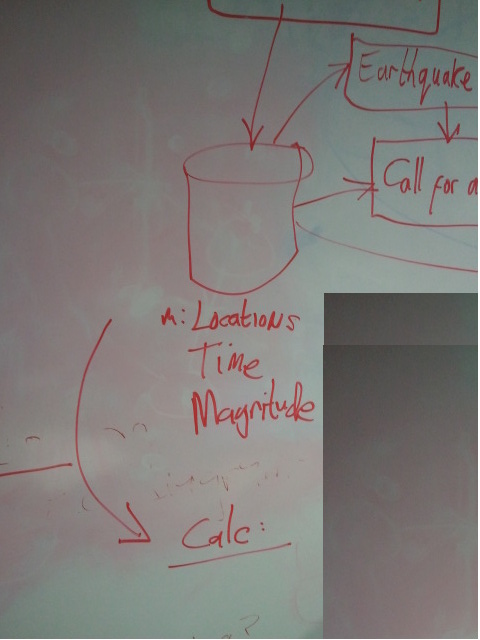 Earthquake
Call for a
m: Locations
Time
Magnitude
Calc: